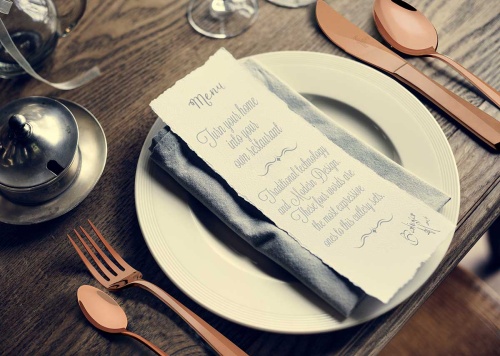 Menu
Turn your home
into your
own restaurant
Traditional technology
and Modern Design.
These four words are
the most expressive
ones to this cutlery sets.